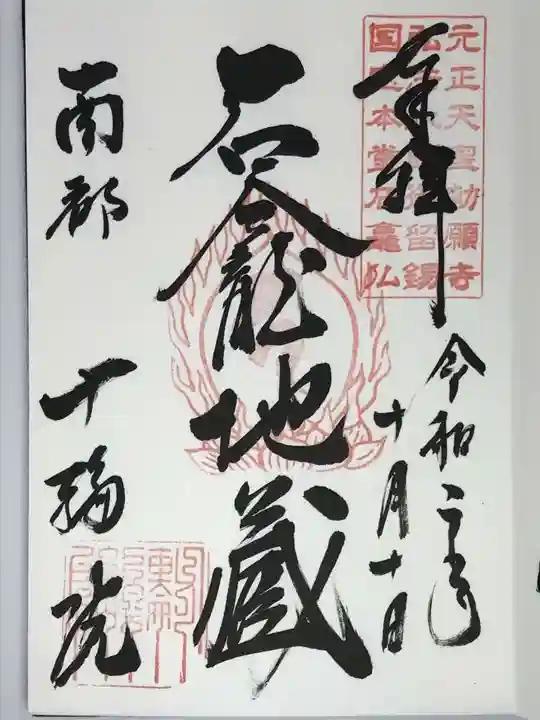 奉拝
令和二年
十月十日
石龕地蔵
南都
十輪院
元正天皇勅願寺
弘法大師留錫
国宝本堂石龕仏